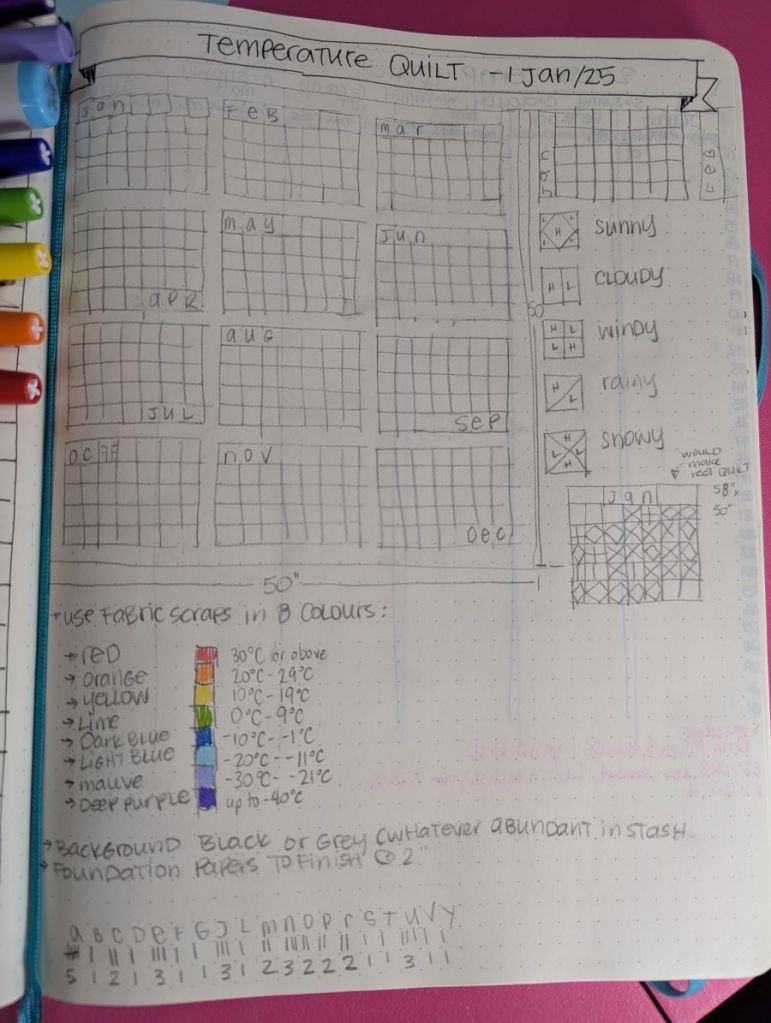 TEMPERATURE QUILT - 1 Jan/25
Jan
FEB
mar
Jan
FEB
may
Jun
APR
AUG
JUL
SEP
OCT
NOV
DEC
50
50"
L L
H
L L
sunny
H L
CLOUDY
H L
L H
windy
H
L
rainy
H
L L
H
snowy
WOULD
make
rect QUILT
Jan
58" x
50"
USE FABRIC SCRAPS in 8 COLOURS:
→ RED 30°C or above
→ Orange 20°C - 29°C
→ yellow 10°C - 19°C
→ Lime 0°C - 9°C
→ Dark Blue -10°C - -1°C
→ Light Blue -20°C - -11°C
→ mauve -30°C - -21°C
→ Deep purple up to -40°C
→ BACKGROUND BLACK or Grey (whatever abundant in STASH.
→ FOUNDATION PAPERS TO FINISH @ 2"
a B C D e F G J L m n o p r S T U V y
5 1 2 1 3 1 1 3 1 2 3 2 2 2 1 1 3 1 1